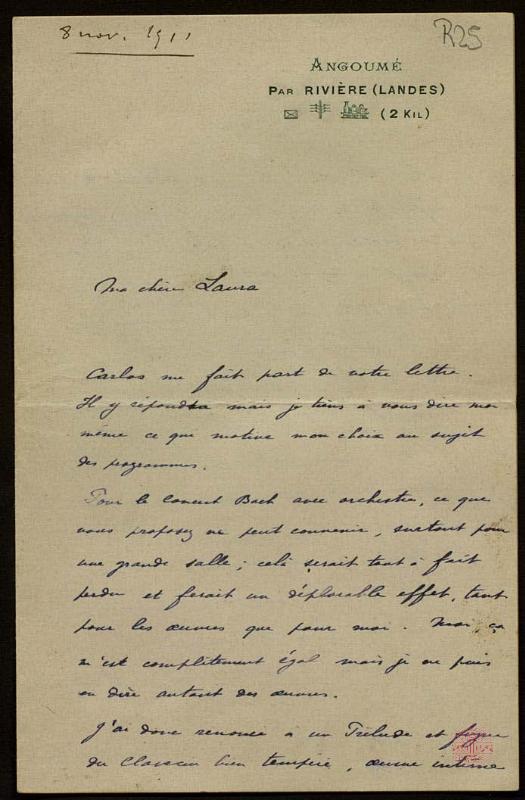 8 nov. 1911
R25
ANGOUMÉ
PAR RIVIÈRE (LANDES)
(2 KIL)
Ma chère Laura
Carlos me fait part de votre lettre.
Il y répondra mais je tiens à vous dire moi
même ce que motive mon choix au sujet
des programmes.
Pour le Concert Bach avec orchestre, ce que
vous proposez ne peut convenir, surtout pour
une grande salle ; celà serait tout à fait
perdu et ferait un déplorable effet, tant
pour les œuvres que pour moi. Moi, ça
m'est complètement égal mais je ne puis
en dire autant des œuvres.
J'ai donc renoncé à un Prélude et fugue
du Clavecin bien tempéré, œuvre intime